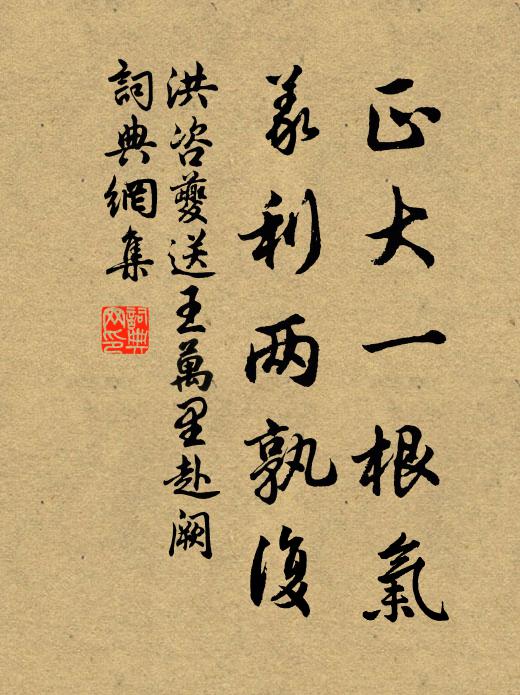 正大一根氣
義利两孰復
洪咨夔送王萬里赴闕
詞典網集
詞典
网印